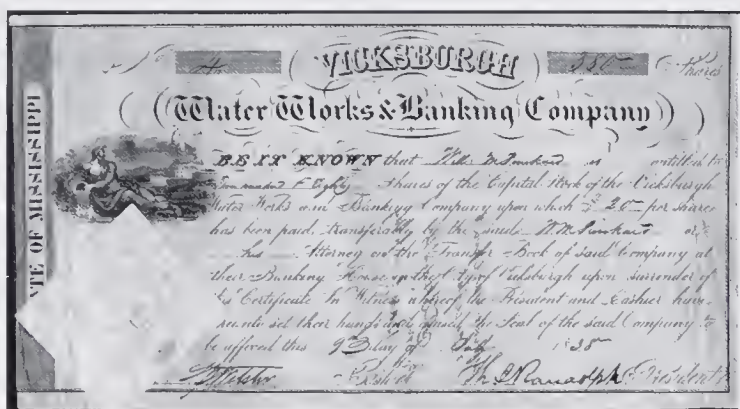 No 4 VICKSBURGH Shares
Water Works & Banking Company
STATE OF MISSISSIPPI
BE IT KNOWN that Will is entitled to
Eighty Shares of the Capital Stock of the Vicksburgh
Water Works and Banking Company upon which $25 per share
has been paid, transferable by the said or
his Attorney on the Transfer Book of said Company at
their Banking House in the City of Vicksburgh upon surrender of
this Certificate In Witness whereof the President and Cashier have
unto set their hands and caused the Seal of the said Company to
be affixed this 9 Day of 1838
Cashier Randolph President